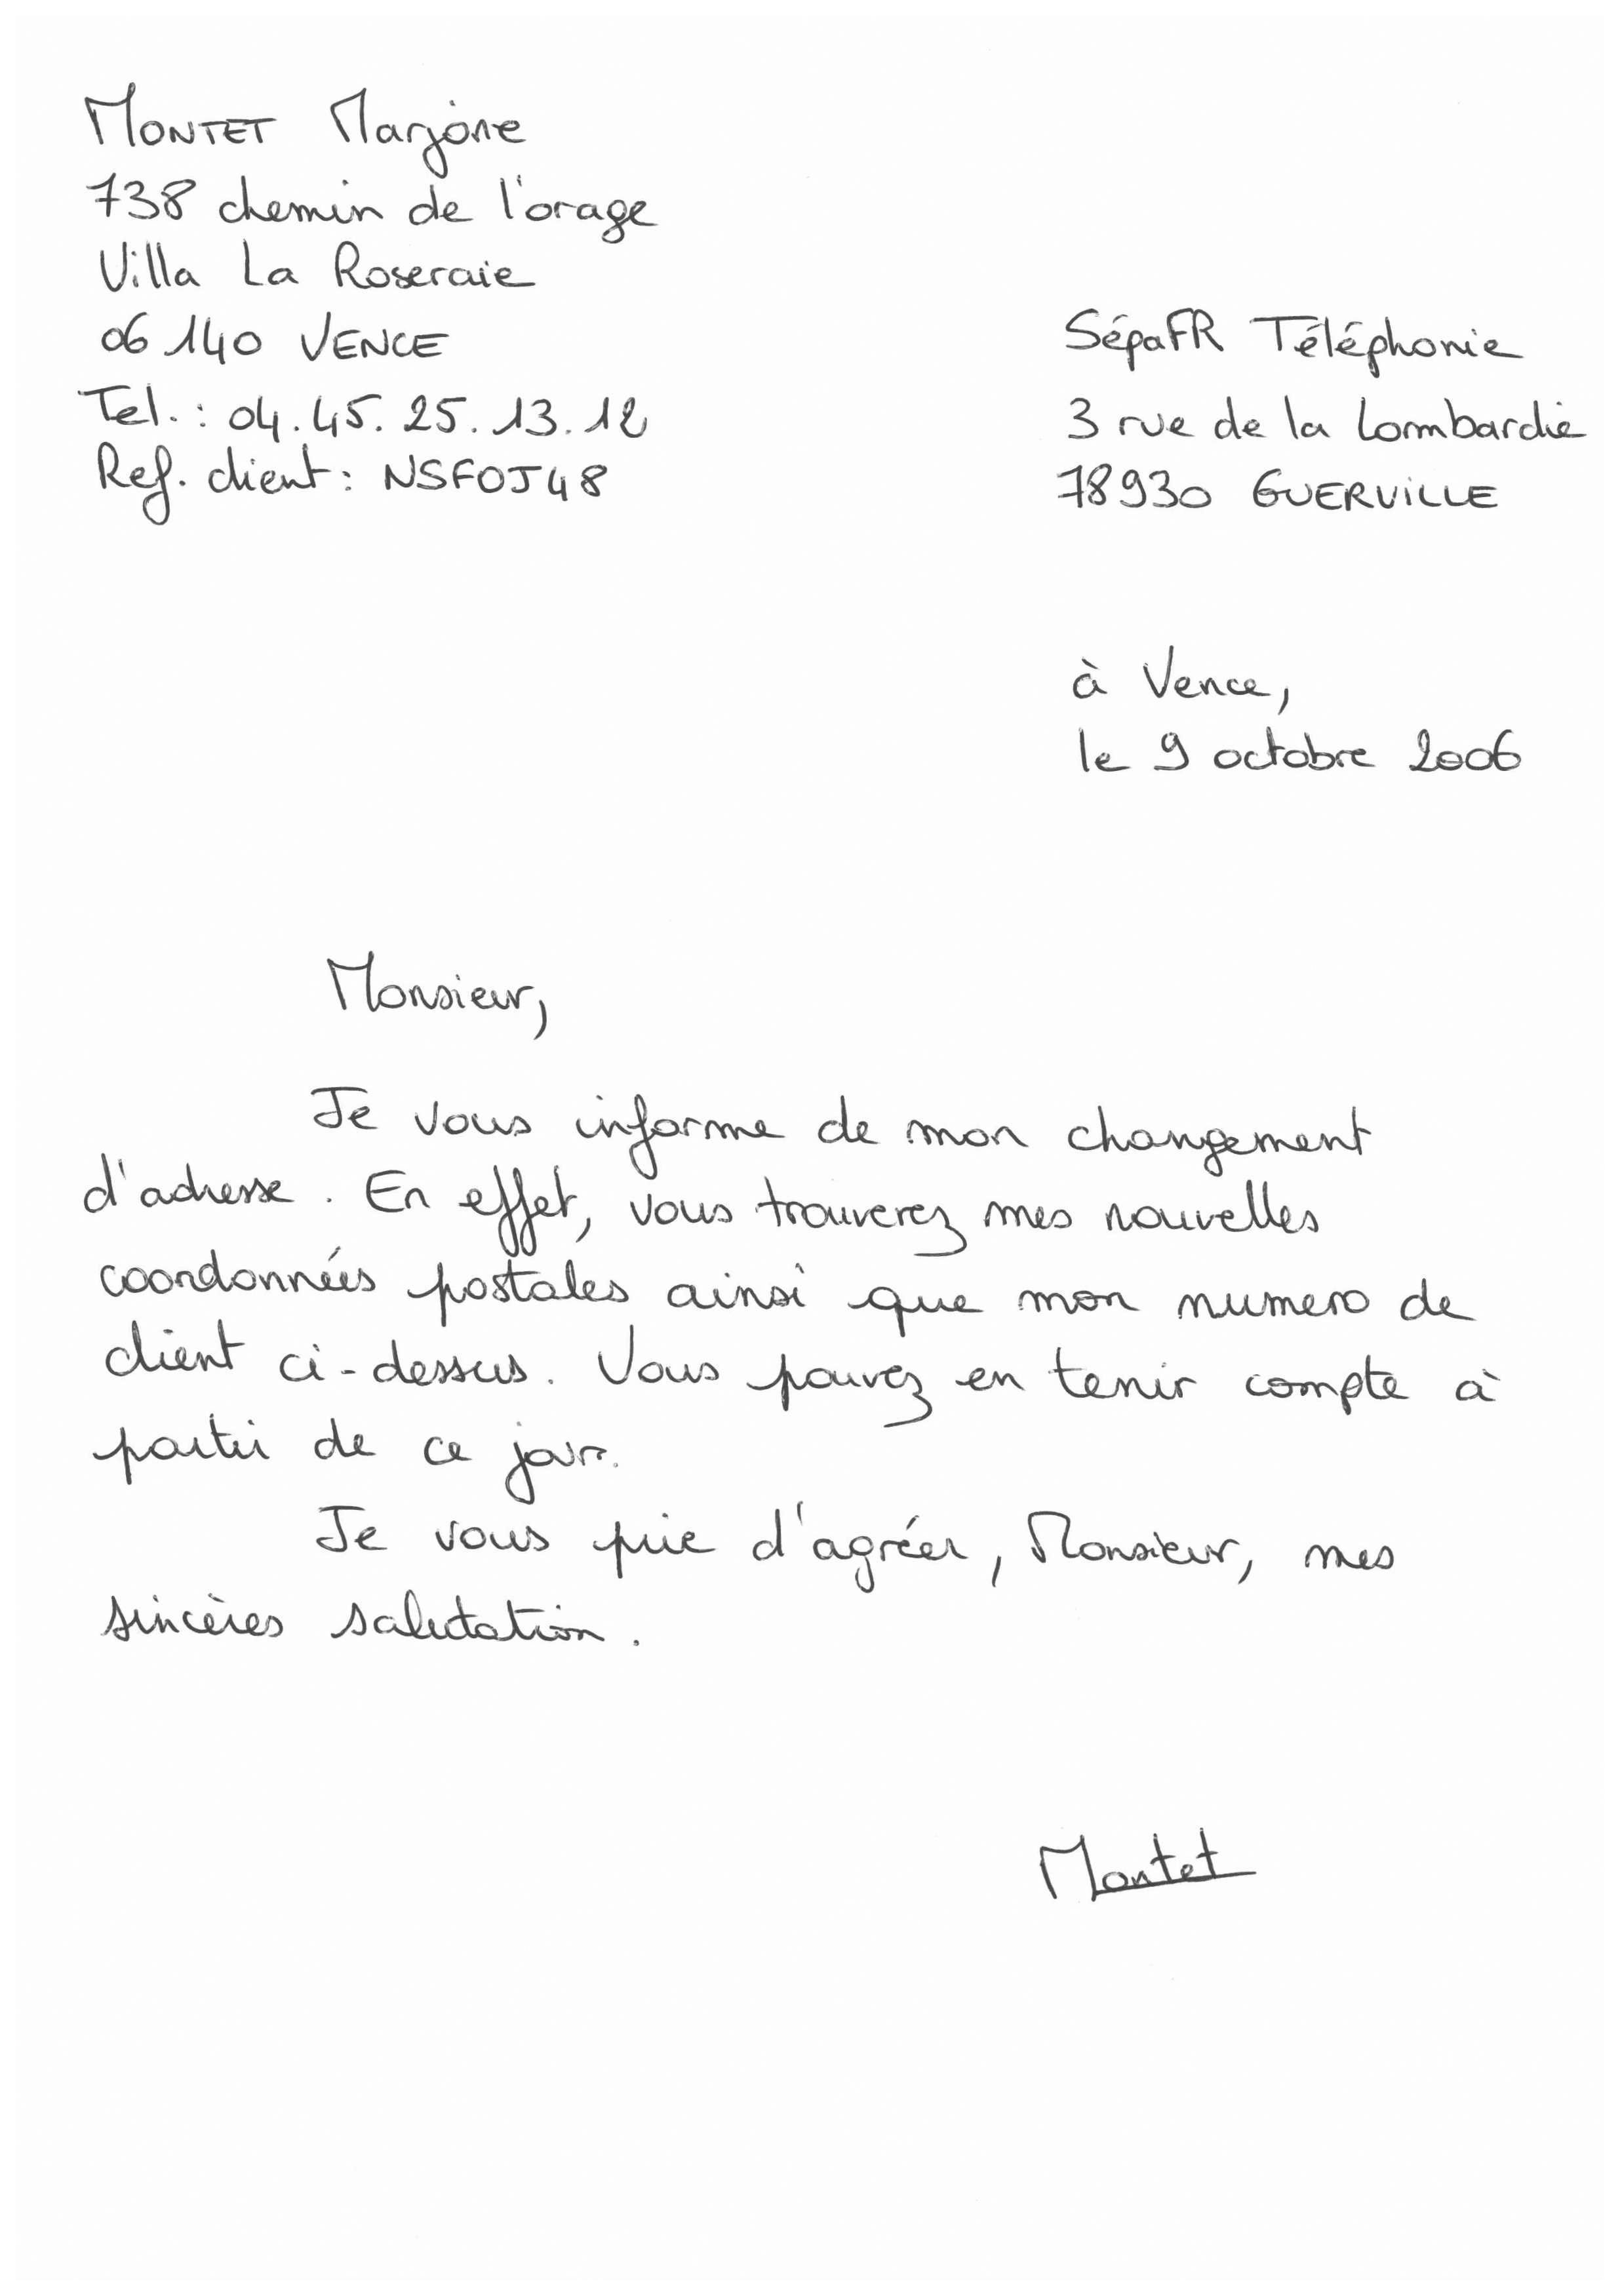 MONTET Marjorie
738 chemin de l'orage
Villa La Roseraie
06 140 VENCE
Tel. : 04.45.25.13.12
Ref. client : NSFOJ48
SépaFR Téléphonie
3 rue de la Lombardie
78930 GUERVILLE
à Vence,
le 9 octobre 2006
Monsieur,
Je vous informe de mon changement
d'adresse. En effet, vous trouverez mes nouvelles
coordonnées postales ainsi que mon numero de
client ci-dessus. Vous pouvez en tenir compte à
partir de ce jour.
Je vous prie d'agréer, Monsieur, mes
sincères salutation.
Montet